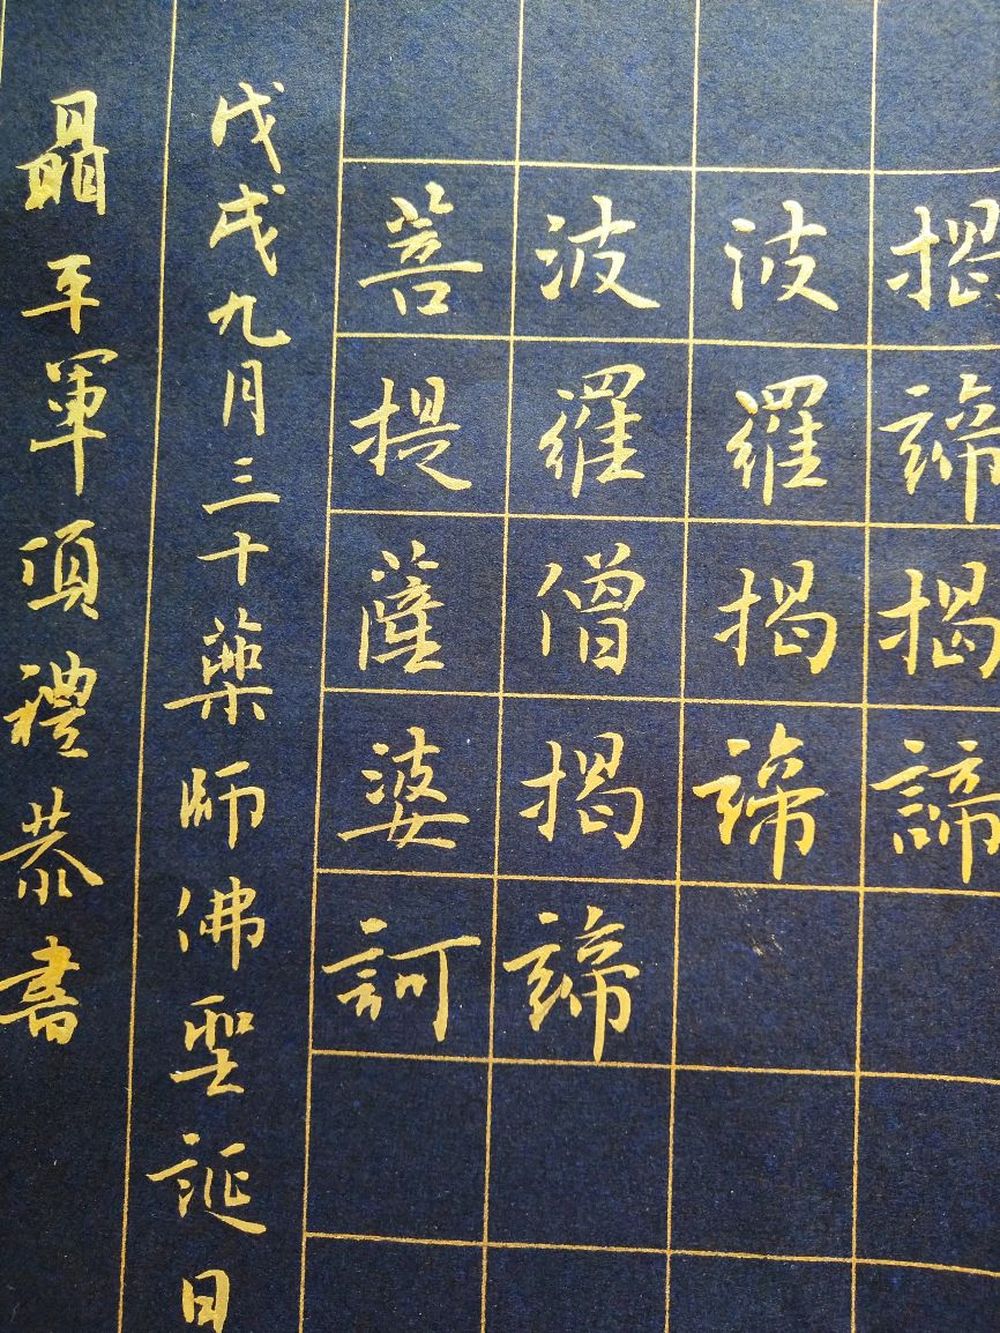 揭諦揭諦
波羅揭諦
波羅僧揭諦
菩提薩婆訶
戊戌九月三十藥師佛聖誕日
聶平軍頂禮恭書